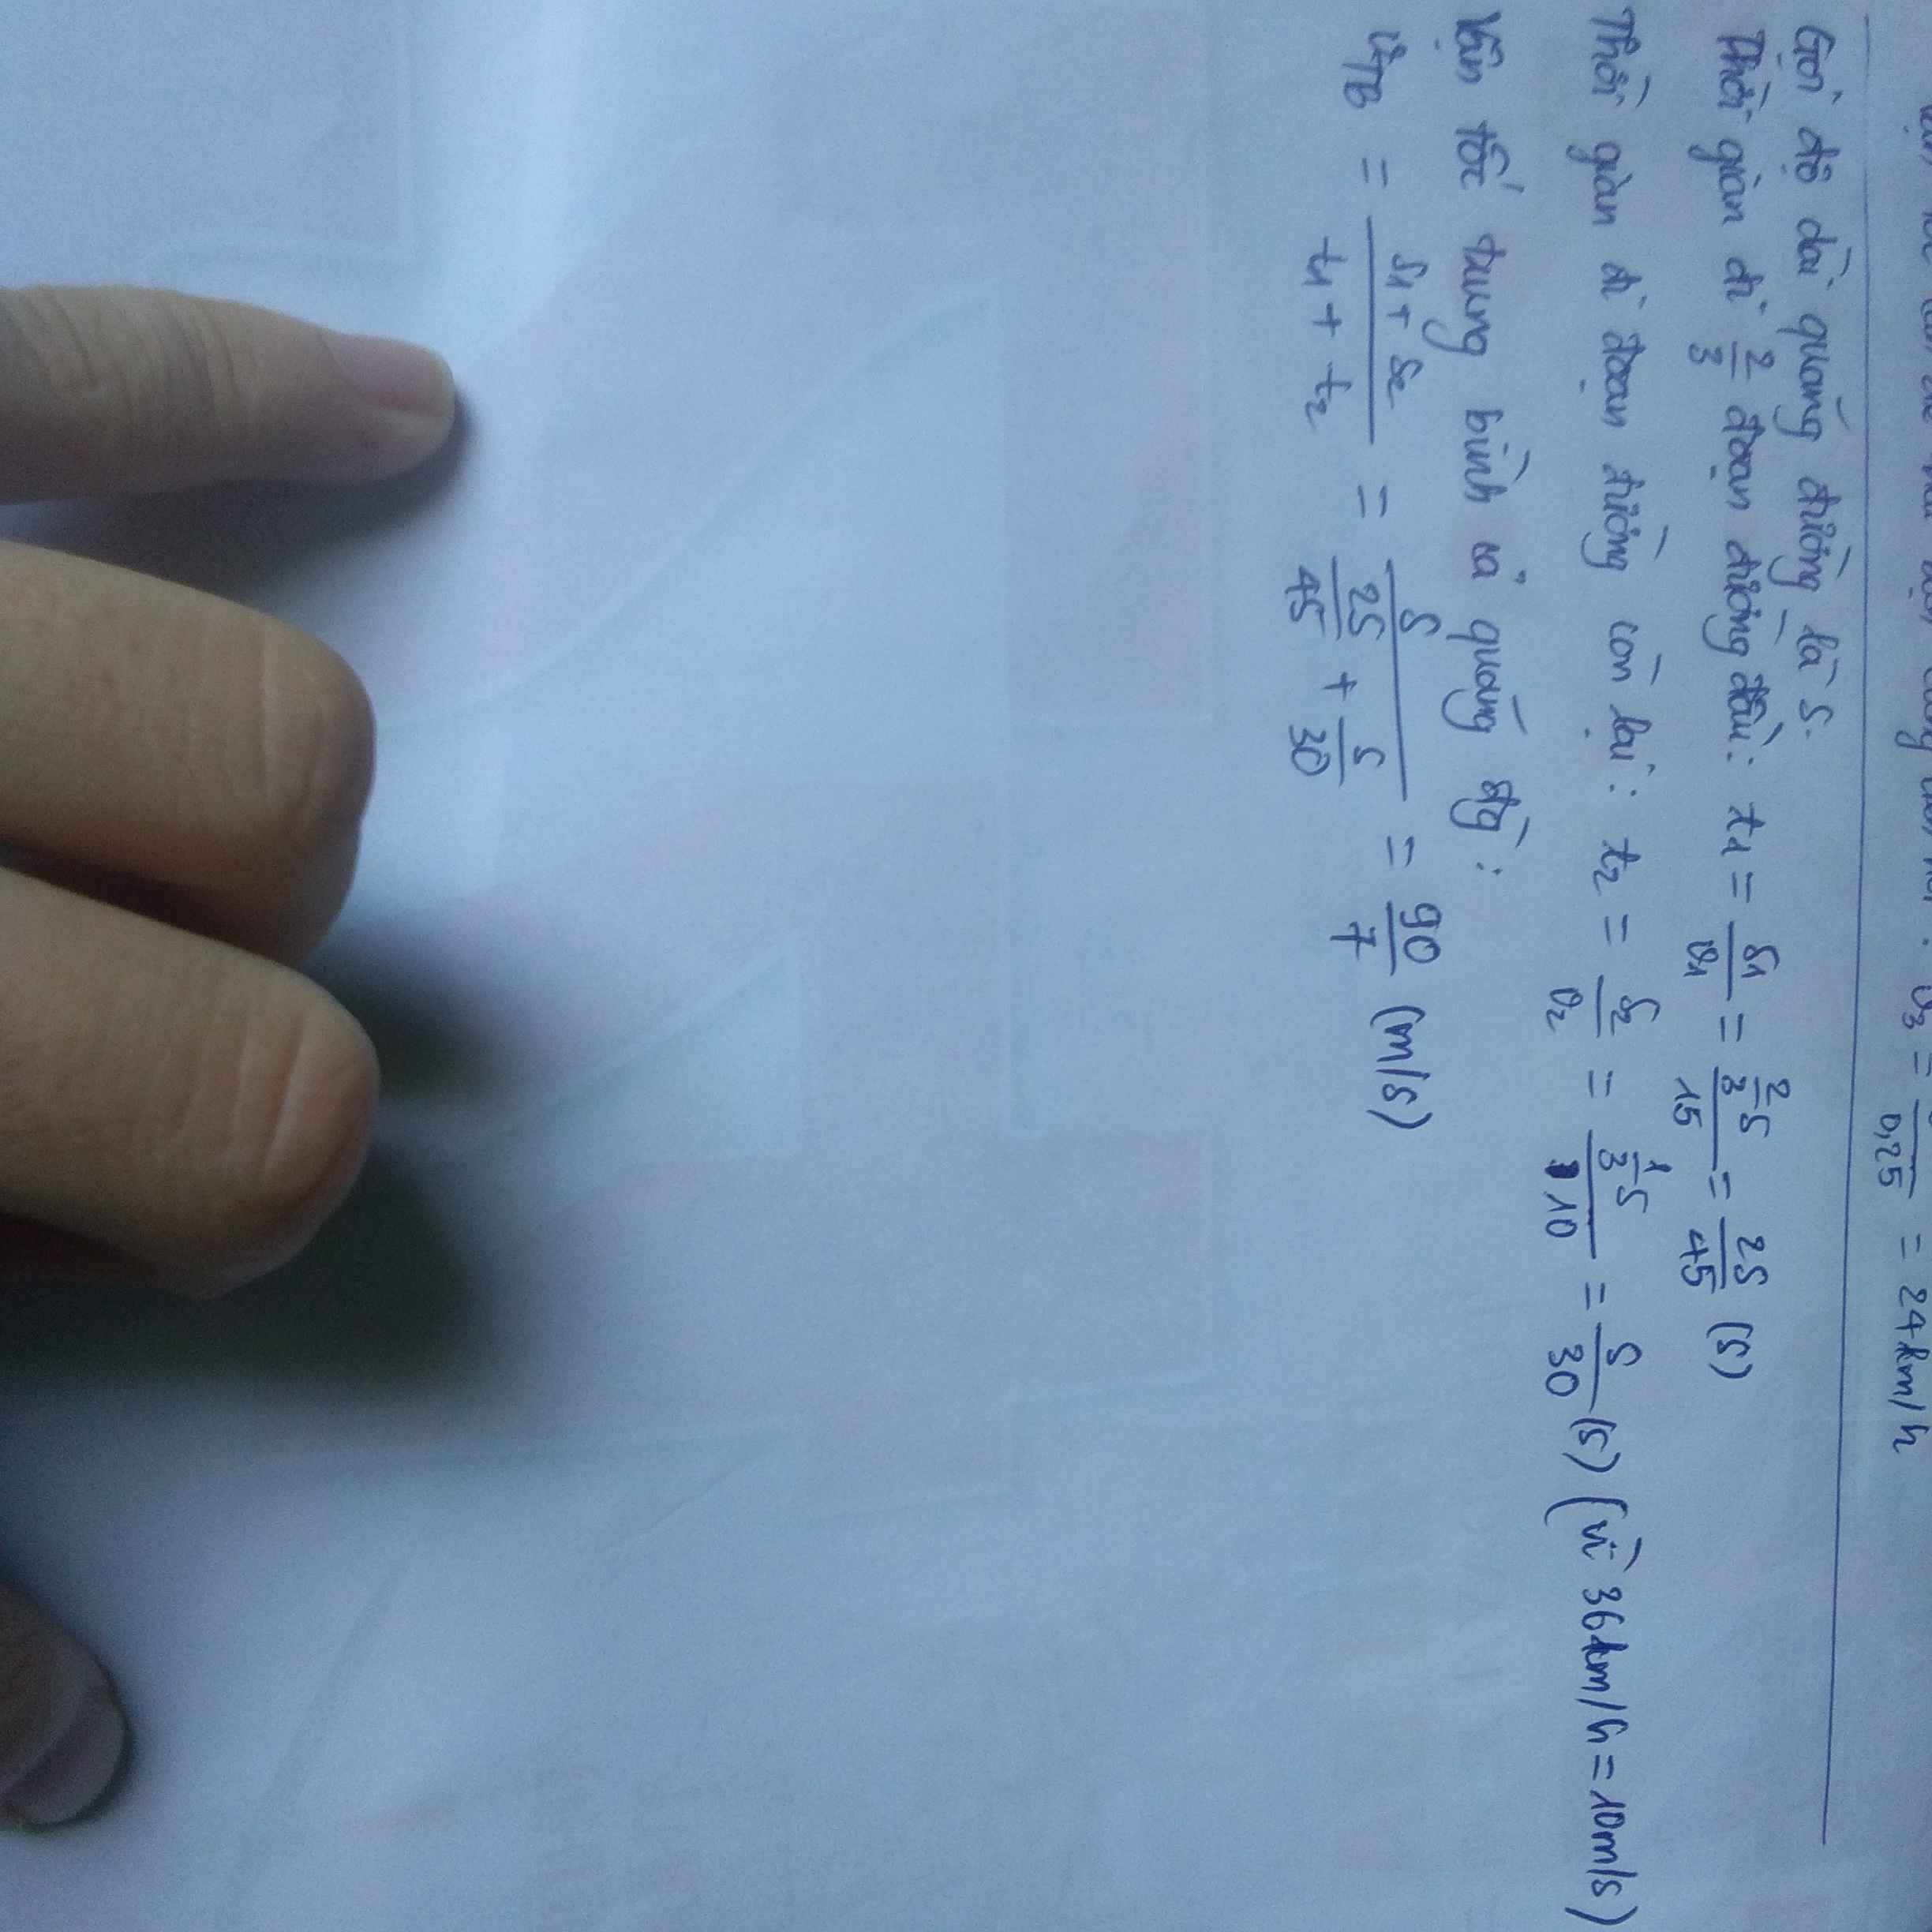 0,25 = 24km/h
Gọi độ dài quãng đường là S.
Thời gian đi 2/3 đoạn đường đầu: t1 = S1/v1 = 2/3S/15 = 2S/45 (s)
Thời gian đi đoạn đường còn lại: t2 = S2/v2 = 1/3S/10 = S/30 (s) (vì 36km/h = 10m/s)
Vận tốc trung bình cả quãng đg:
vTB = S1 + S2/t1 + t2 = S/2S/45 + S/30 = 90/7 (m/s)